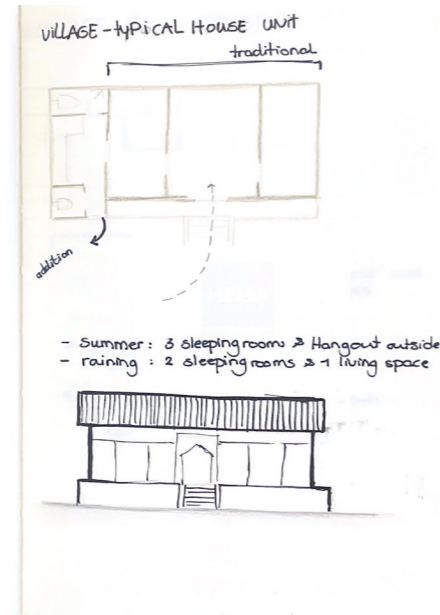 ViLLAGE - tyPiCAL HOUSE UNiT
traditional
addition
- Summer : 3 sleeping rooms & Hangout outside
- raining : 2 sleeping rooms & 1 living space